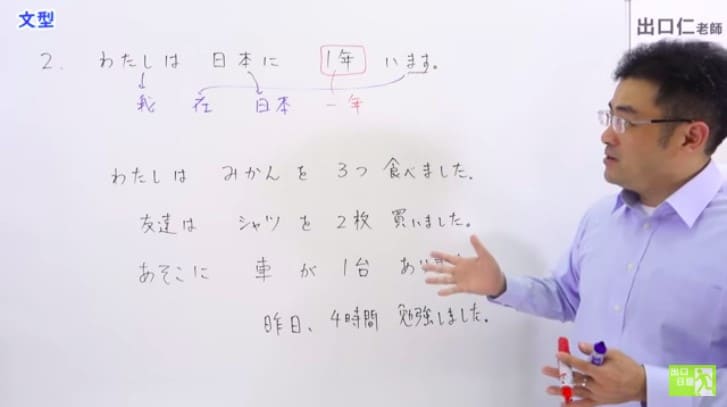 文型
出口仁老師
2. わたしは 日本に 1年 います。
我 在 日本 一年
わたしは みかんを 3つ 食べました。
友達は シャツを 2枚 買いました。
あそこに 車が 1台
昨日、4時間 勉強しました。
出口
日語